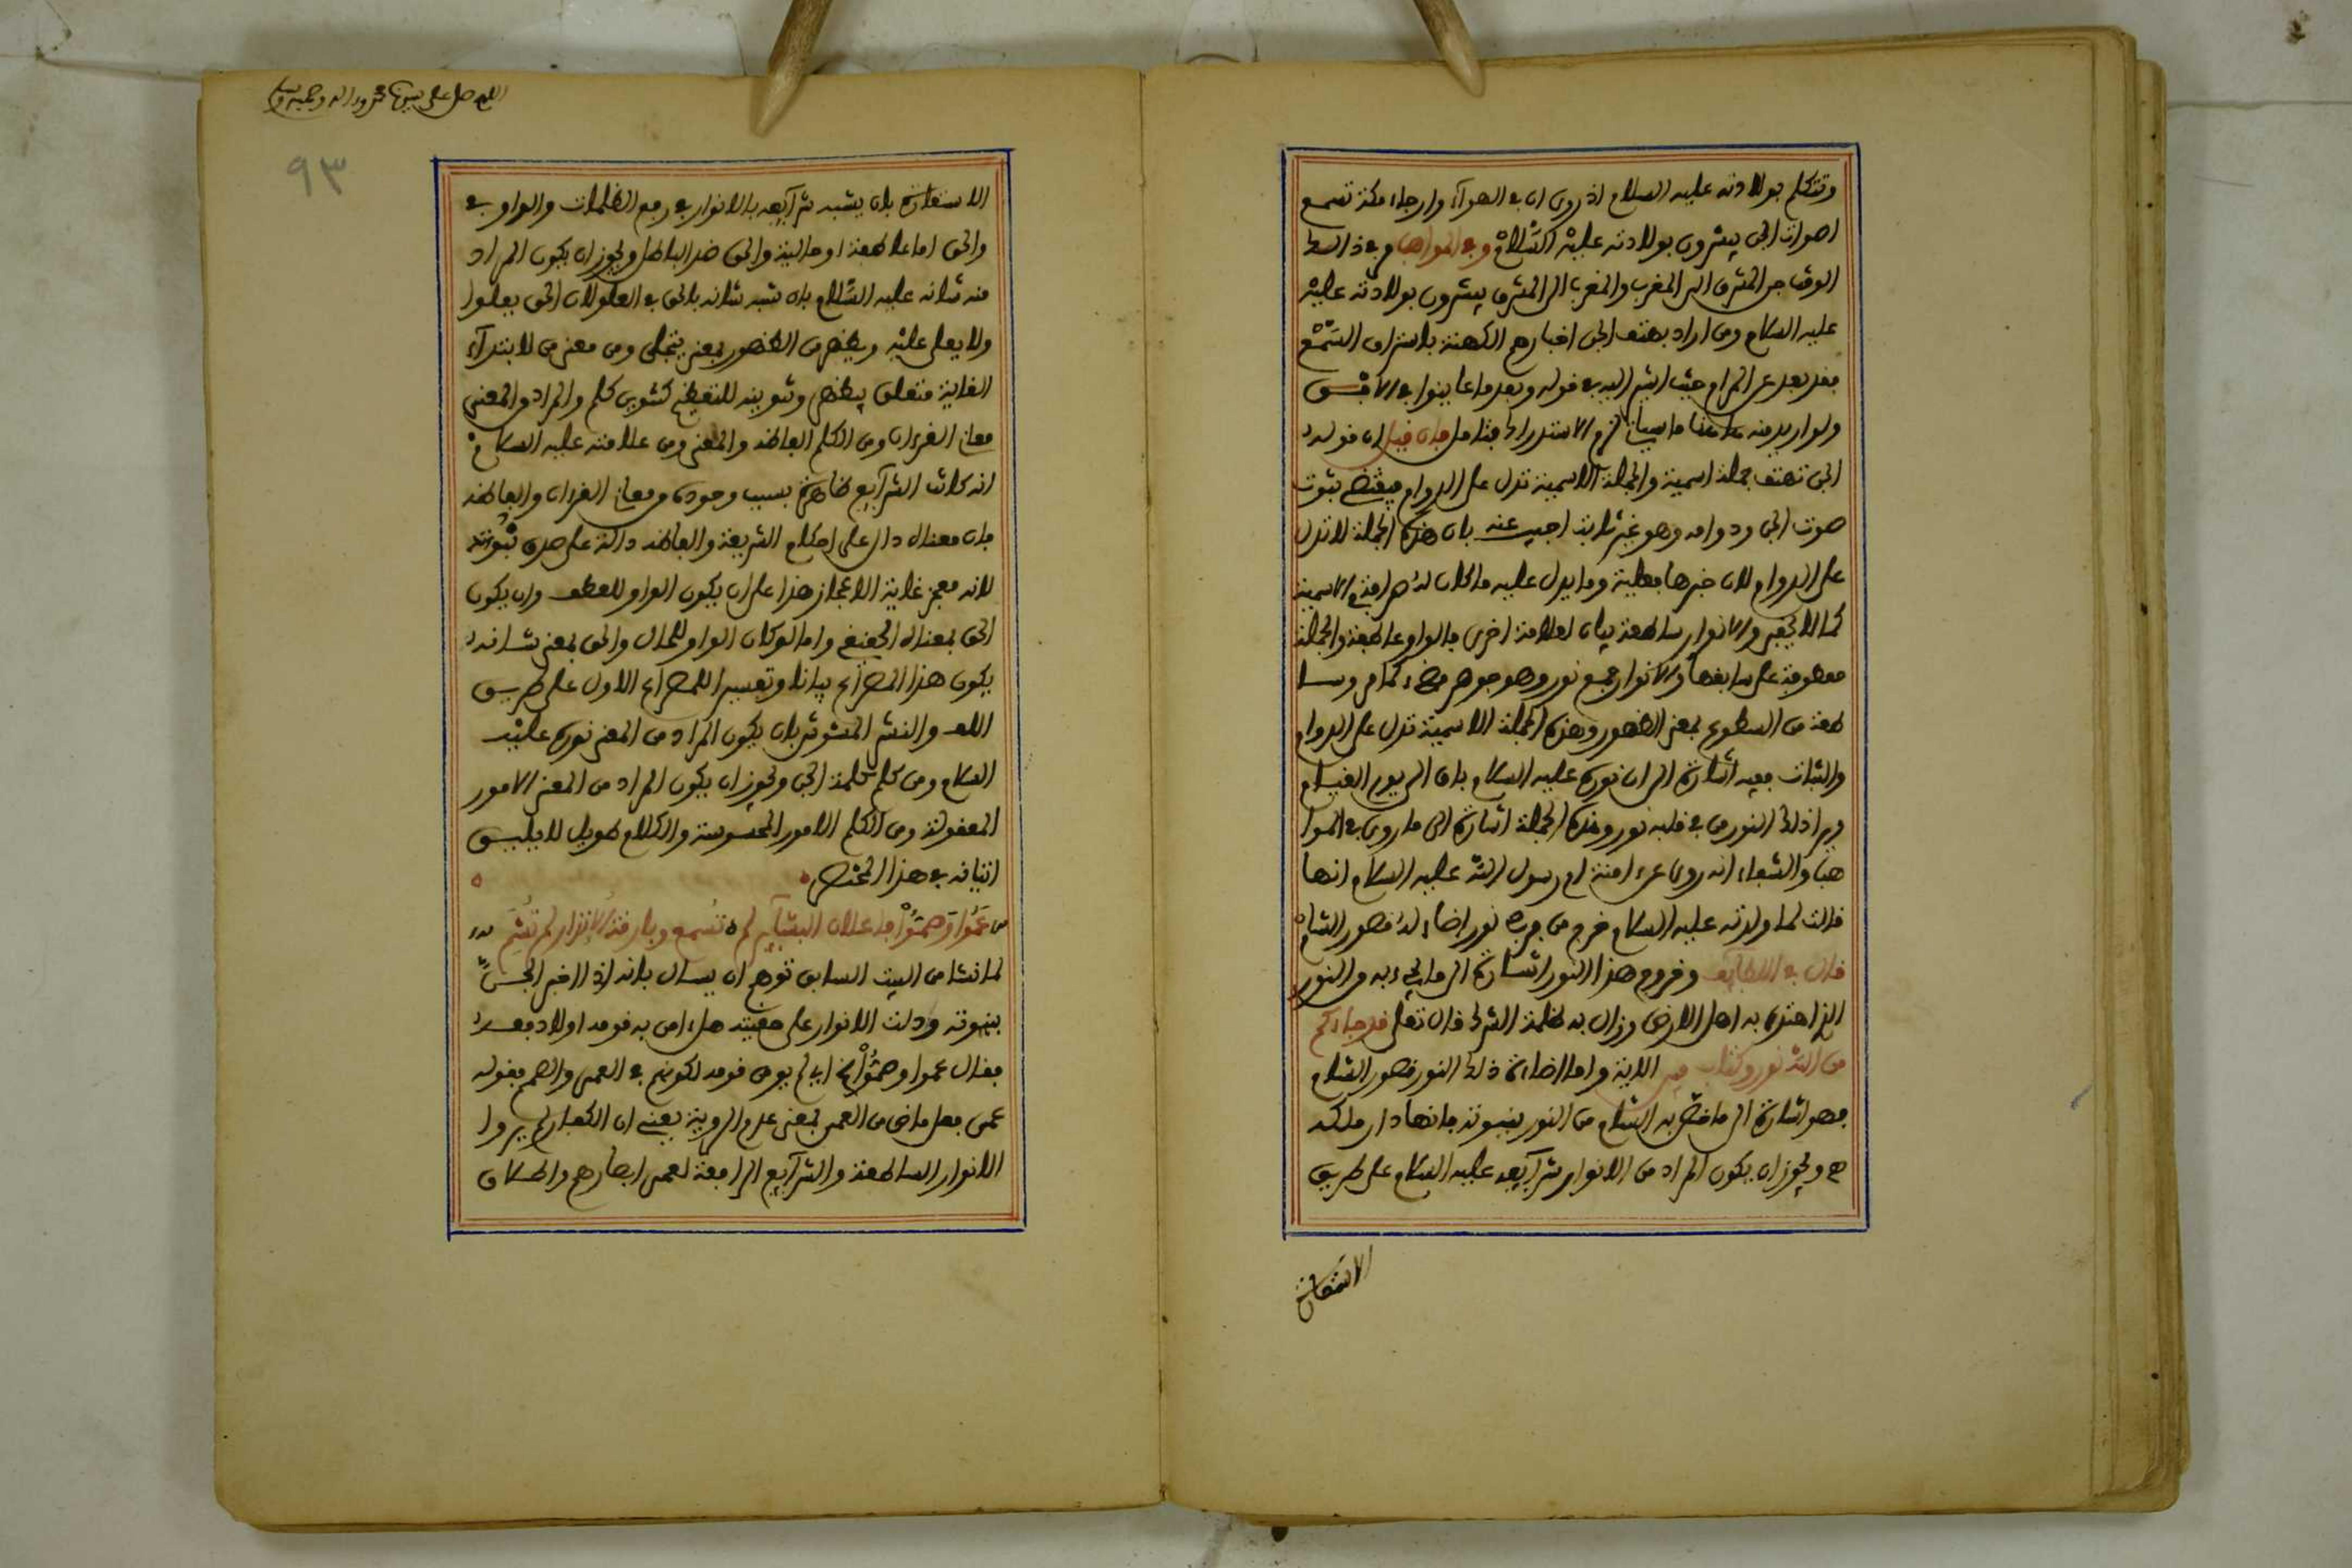 وتتكلم بولادته عليه السلام اذ روى ان في الهوآء وارجاء مكة تسمع
اصوات الجن يبشرون بولادته عليه السلام وفي المواهب وفي ذالك
الوقت من المشرق الى المغرب والمغرب الى المشرق يبشرون بولادته عليه
عليه السلام ومن اراد بهتف الجن اخبارهم الكهنة باستراق السمع
فقد بعد عن المرام حيث اشير اليه في قوله وبعد ما عاينوا في الافق
ولو اريد منه هاهنا ما سياتي لزم الاستدراك فتامل فان قيل ان قوله
الجن تهتف جملة اسمية والجملة الاسمية تدل على الدوام فيقتضي ثبوت
صوت الجن ودوامه وهو غير ثابت اجيب عنه بان هذه الجملة لا تدل
على الدوام لان خبرها فعلية وما يدل عليه ما كان الاسمية
كما لا يخفى والانوار ساطعة بيان لعلامة اخرى فالواو عاطفة والجملة
معطوفة على سابقها والانوار جمع نور وهو جوهر مضيء كما مر وسا
طعة من السطوع بمعنى الظهور وهذه الجملة الاسمية تدل على الدوام
والثبات ففيه اشارة الى ان نوره عليه السلام باق الى يوم القيام
ويرا ذلك النور من في قلبه نور وهذه الجملة اشارة الى ما روي في الموا
هب والشفاء انه روى عن امنة ام رسول الله عليه السلام انها
قالت لما ولدته عليه السلام خرج من نور اضاء له قصور الشام
قال في اللطايف وخروج هذا النور اشارة الى ما يجيء به من النور
الذي اهتدى به اهل الارض وزال به ظلمة الشرك قال تعلى قد جاءكم
من الله نور وكتاب مبين الاية واما اضاءة ذلك النور قصور الشام
فهو اشارة الى ما خص به الشام من النور بنبوته فانها دار ملكه
ويجوز ان يكون المراد من الانوار شرآيعه عليه السلام على طريق
الاستعارة
اللهم صل على سيدنا محمد واله وصحبه وسلم
٩٣
الاستعارة بان يشبه شرآيعه بالانوار في رفع الظلمات والواو في
والحق اما عاطفة او حالية والحق ضد الباطل ويجوز ان يكون المراد
منه شانه عليه السلام بان شبه شانه بالحق في العلو لان الحق يعلوا
ولا يعلى عليه ويظهر من الظهور بمعنى يتجلى ومن معنى من لابتدآء
الغاية متعلق بيظهر وتنوينه للتعظيم كتنوين كلم والمراد من المعنى
معاني القرءان ومن الكلم الفاظه والمعنى ومن علامته عليه السلام
انه كانت الشرآيع ظاهرة بسبب وجوده ومعاني القرءان والفاظه
فان معناه دال على احكام الشريعة والفاظه دالة على صدق نبوته
لانه معجز غاية الاعجاز هذا على ان يكون الواو للعطف وان يكون
الحق بمعناه الحقيقي واما لو كان الواو للحال والحق بمعنى شانه
يكون هذا المصراع بيانا وتفسيرا للمصراع الاول على طريق
اللف والنشر المشوش بان يكون المراد من المعنى نوره عليه
السلام ومن كلم كلمة الجن ويجوز ان يكون المراد من المعنى الامور
المعقولة ومن الكلم الامور المحسوسة والكلام طويل لا يليق
اتيانه في هذا المختصر
ص عَمُوا وَصَمُّوا فاعلان البشآير لم تُسمع وبارقة الانذار لم تُشَم
لما نشا من البيت السابق توهم ان يسال بانه اذا اخبر الجن
بنبوته ودلت الانوار على حقيته هل امن به قومه اولا دفعه
فقال عموا وصموا الخ اي لم يومن قومه لكونهم في العمى والصمم فقوله
عمى فعل ماض من العمى بمعنى عدم الروية يعني ان الكفار لم يروا
الانوار الساطعة والشرآيع الرافعة لعمى ابصارهم والحكان